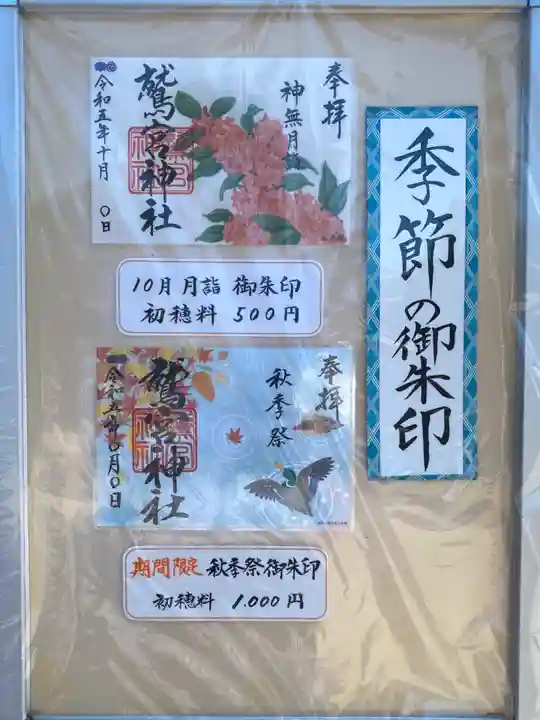 季節の御朱印
奉拝
神無月詣
鷲宮神社
令和五年十月 〇日
10月月詣 御朱印
初穂料 500円
奉拝
秋季祭
鷲宮神社
令和五年〇月〇日
期間限定 秋季祭御朱印
初穂料 1.000円